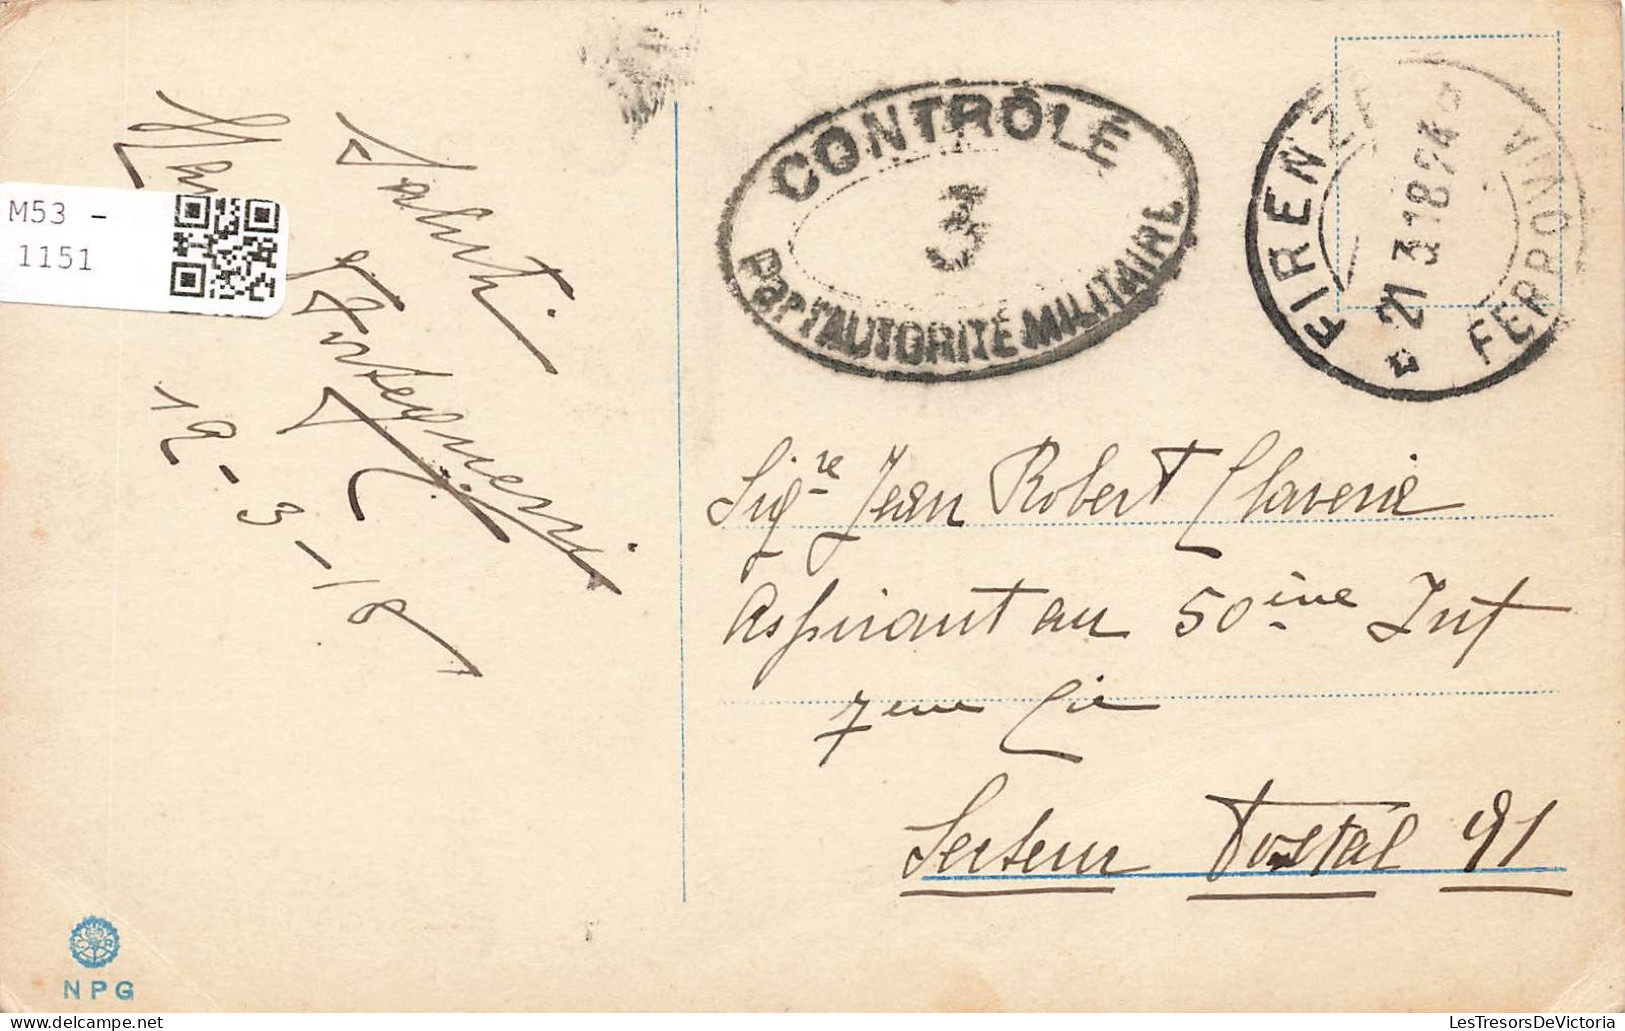 M53 -
1151
Saluti
19-3-18
CONTRÔLÉ
3
Par l'AUTORITÉ MILITAIRE
FIRENZE
21.3.18
FERROVIA
Sigre Jean Robert Claverie
Aspirant au 50ème Inf
7eme Cie
Secteur Postal 91
NPG
LesTresorsDeVictoria